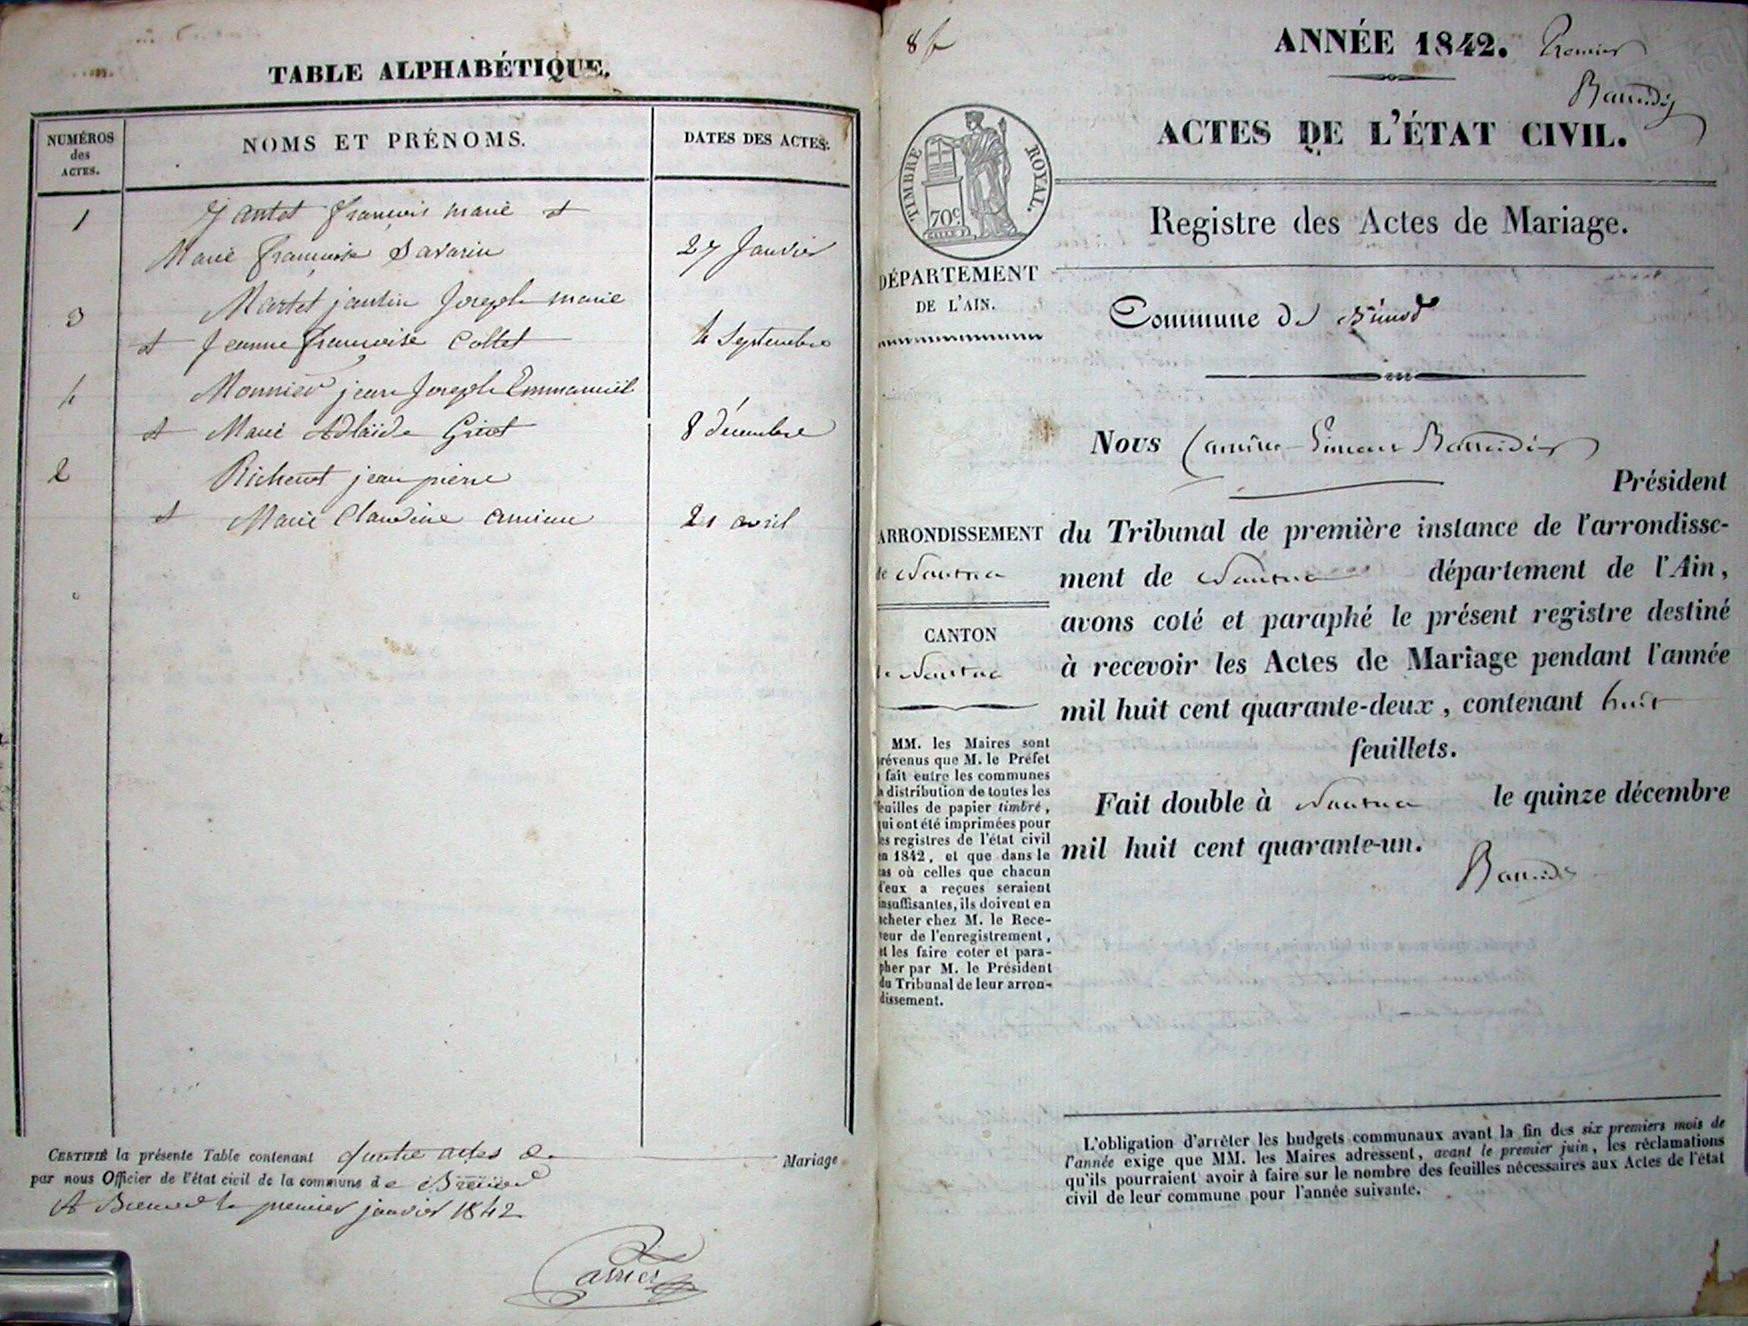 TABLE ALPHABÉTIQUE.
NUMÉROS
des
ACTES.
NOMS ET PRÉNOMS.
DATES DES ACTES.
1
Jantet françois marie et
Marie françoise Savarin
27 Janvier
3
Martet jantin Joseph marie
et Jeanne françoise Collet
4 Septembre
4
Monnier jean Joseph Emmanuel
et Marie Adlaïde Grinet
8 décembre
2
Richerot jean pierre
et Marie Claudine
21 avril
CERTIFIÉ la présente Table contenant quatre actes de Mariage
par nous Officier de l'état civil de la commune de Brénod
A Brenod le premier janvier 1842
Carrier
8 f
ANNÉE 1842. Premier
Baudin
ACTES DE L'ÉTAT CIVIL.
TIMBRE ROYAL.
70c
Registre des Actes de Mariage.
DÉPARTEMENT
DE L'AIN.
Commune de Brénod
Nous
Président
ARRONDISSEMENT
de Nantua
CANTON
de Nantua
du Tribunal de première instance de l'arrondisse-
ment de Nantua département de l'Ain,
avons coté et paraphé le présent registre destiné
à recevoir les Actes de Mariage pendant l'année
mil huit cent quarante-deux, contenant huit
feuillets.
Fait double à Nantua le quinze décembre
mil huit cent quarante-un.
MM. les Maires sont
prévenus que M. le Préfet
a fait entre les communes
la distribution de toutes les
feuilles de papier timbré,
qui ont été imprimées pour
les registres de l'état civil
en 1842, et que dans le
cas où celles que chacun
d'eux a reçues seraient
insuffisantes, ils doivent en
acheter chez M. le Rece-
veur de l'enregistrement,
et les faire coter et para-
pher par M. le Président
du Tribunal de leur arron-
dissement.
L'obligation d'arrêter les budgets communaux avant la fin des six premiers mois de
l'année exige que MM. les Maires adressent, avant le premier juin, les réclamations
qu'ils pourraient avoir à faire sur le nombre des feuilles nécessaires aux Actes de l'état
civil de leur commune pour l'année suivante.